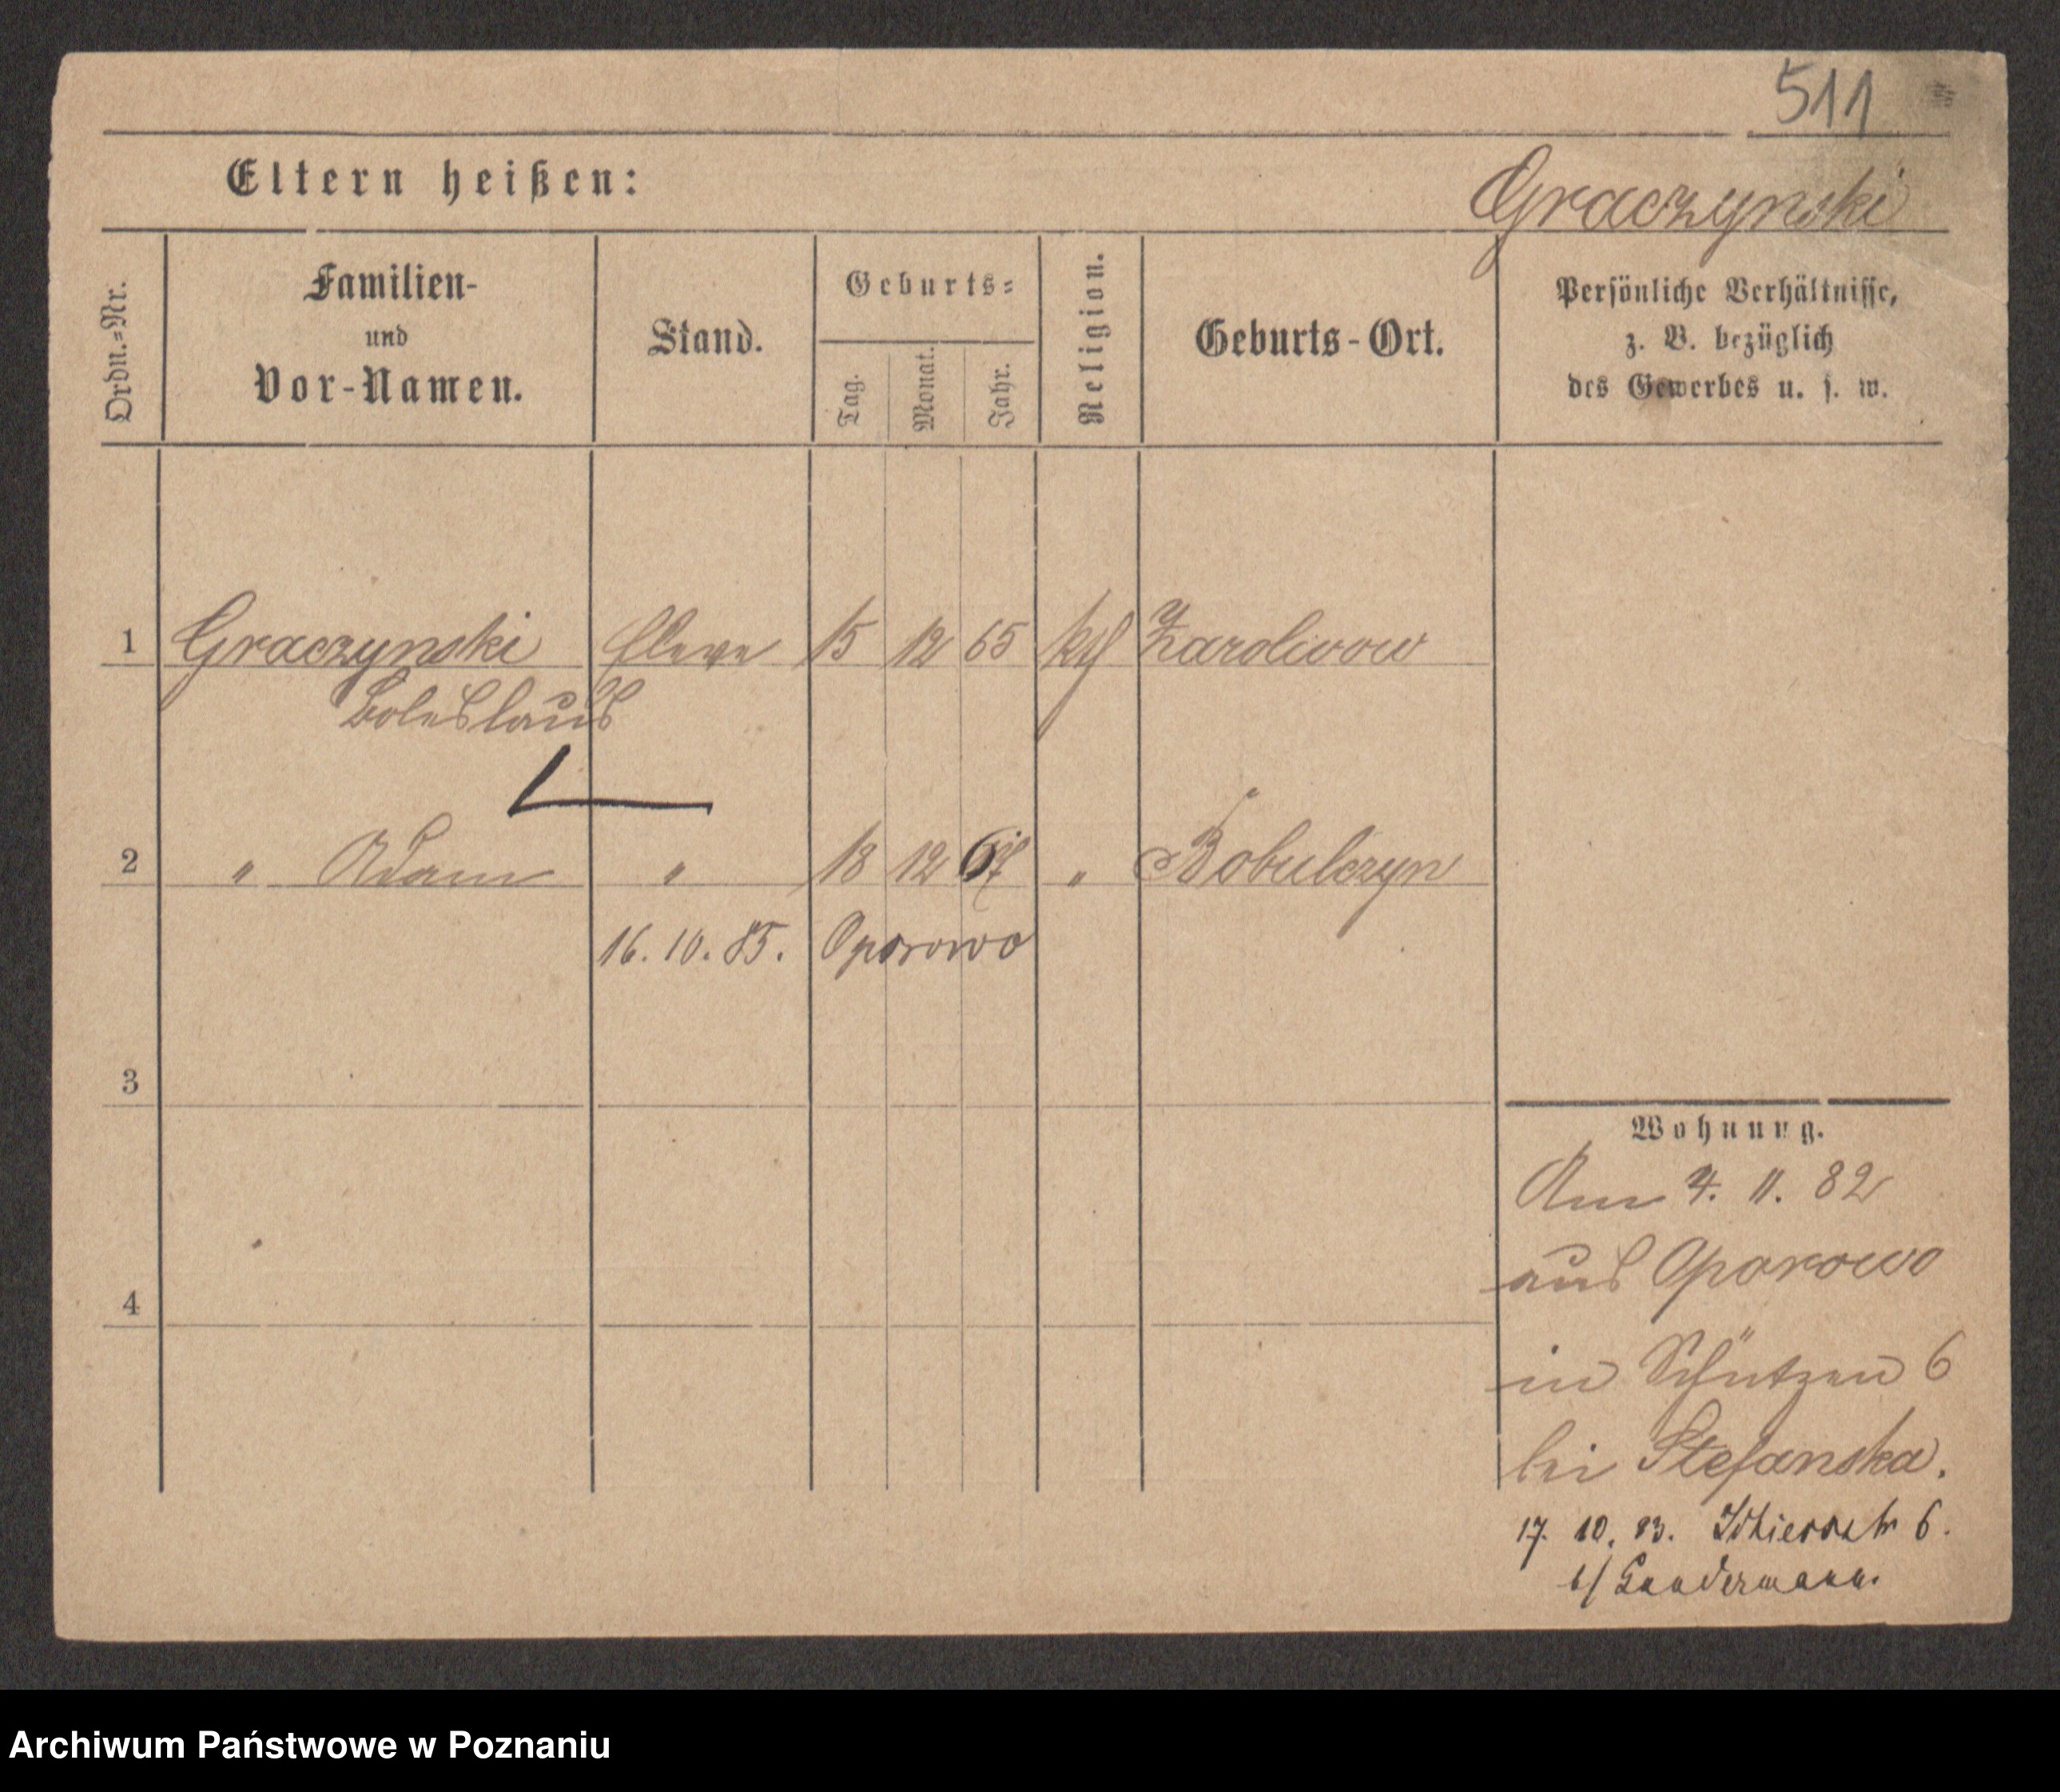 511
Eltern heißen:
Graczynski
Ordn.-Nr.
Familien-
und
Vor-Namen.
Stand.
Geburts-
Tag.
Monat.
Jahr.
Religion.
Geburts-Ort.
Persönliche Verhältnisse,
z. B. bezüglich
des Gewerbes u. s. w.
1 Graczynski Eleve 15 12 65 kth
Boleslaus
2 " Adam " 18 12 67 " Bobulczyn
16. 10. 85. Oporowo
3
4
Wohnung.
Am 4. 11. 82
aus Oporowo
in Schützen 6
bei Stefanska.
17. 10. 83. 6.
b/
Archiwum Państwowe w Poznaniu